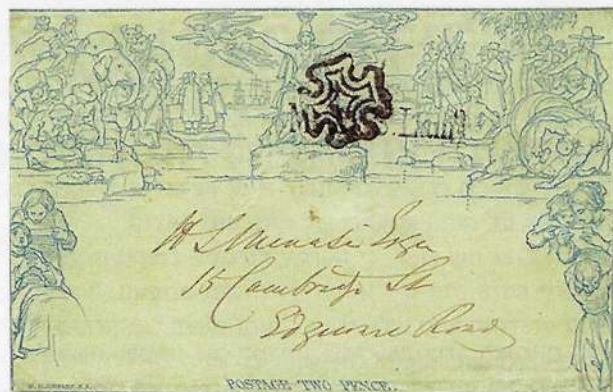 H S Menasi Esqr
15 Cambridge St
Edgware Road
W. MULREADY, R.A.
POSTAGE TWO PENCE.